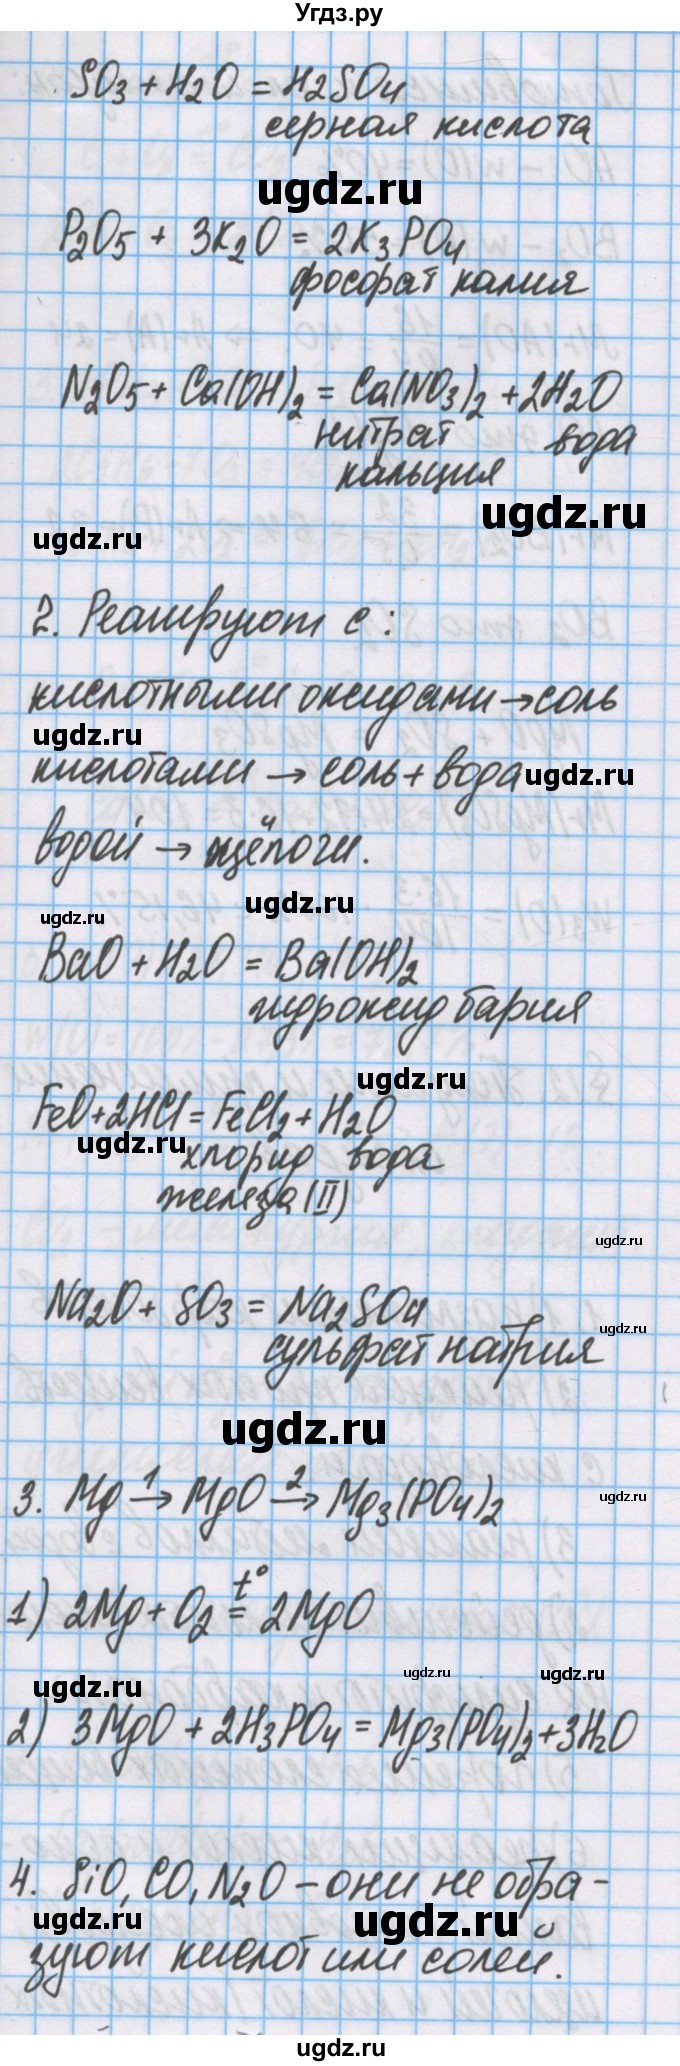 Угдз.ру
SO3 + H2O = H2SO4
серная кислота
ugdz.ru
P2O5 + 3K2O = 2K3PO4
фосфрат калия
N2O5 + Ca(OH)2 = Ca(NO3)2 + 2H2O
нитрат вода
кальция
ugdz.ru
ugdz.ru
2. Реагируют с:
кислотными оксидами → соль
ugdz.ru
кислотами → соль + вода
ugdz.ru
водой → щёлочи.
ugdz.ru
ugdz.ru
BaO + H2O = Ba(OH)2
гидроксид бария
ugdz.ru
FeO + 2HCl = FeCl2 + H2O
ugdz.ru
хлорид вода
железа (II)
ugdz.ru
Na2O + SO3 = Na2SO4
ugdz.ru
сульфат натрия
ugdz.ru
3. Mg 1→ MgO 2→ Mg3(PO4)2
ugdz.ru
1) 2Mg + O2 t°= 2MgO
ugdz.ru
ugdz.ru
ugdz.ru
2) 3MgO + 2H3PO4 = Mg3(PO4)2 + 3H2O
4. SiO, CO, N2O – они не обра-
ugdz.ru
ugdz.ru
зуют кислот или солей.
ugdz.ru